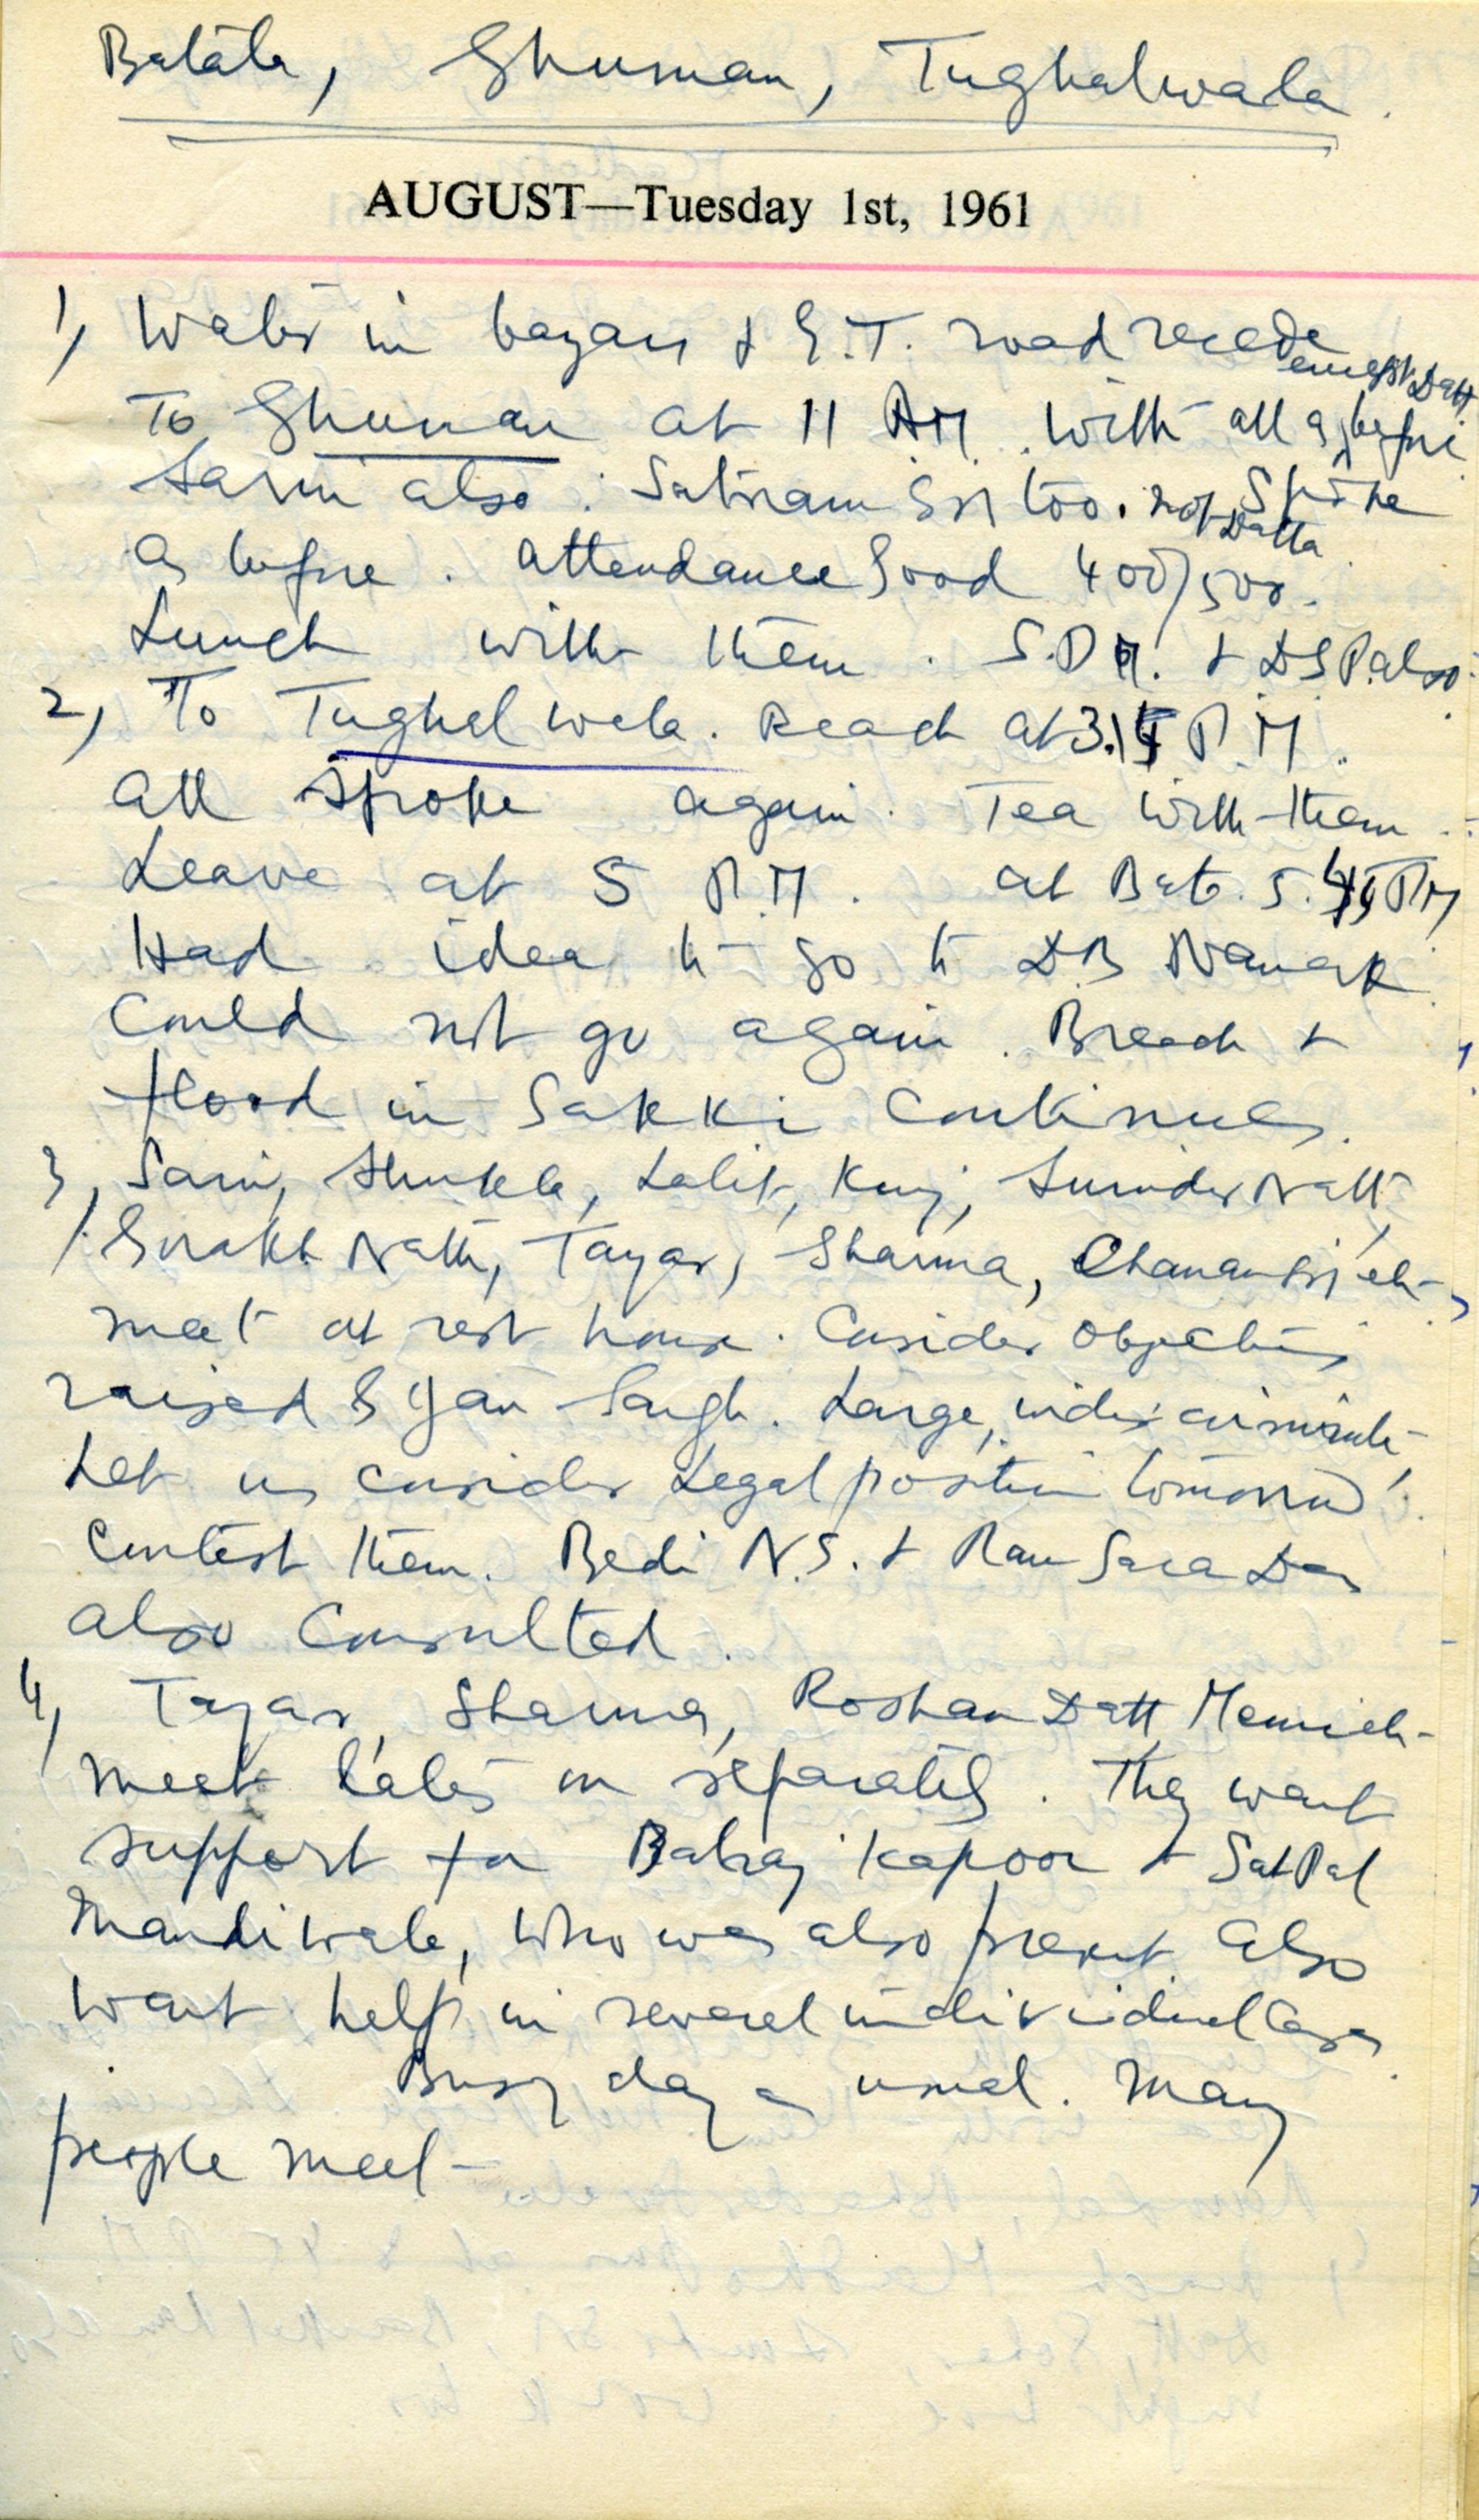 Batala, Ghuman, Tughalwala.
AUGUST—Tuesday 1st, 1961
1, Water in bazars & G.T. road recede
To Ghuman at 11 AM. With all as before except Datt
Sarin also. Satnam Sn too. Spoke
as before. not Datta attendance Good 400/500.
Lunch with them. S.D.M. & DSP. also.
2, To Tughalwala. Reach at 3.15 P.M.
All spoke again. Tea with them.
Leave at 5 P.M. at Bat. 5.45 PM
Had idea to go to D.B Nanak
Could not go again. Breach &
flood in Sakki Continues.
3, Sarin, Shukla, Lalit, Kunj, Surinder Nath,
Gorakh Nath, Tayar, Sharma, Chanan Sn etc
meet at rest house. Consider objections
raised by Jan Sangh. Large, indiscriminate,
Let us consider Legal position tomorrow.
Contest them. Bedi N.S. & Ram Saran Das
also Consulted.
4, Tayar, Sharma, Roshan Datt,
meet later on separately. They want
support for Balraj Kapoor & Sat Pal
Mandiwala, who was also present also
want help in several individual cases.
Busy day as usual. Many
people meet -